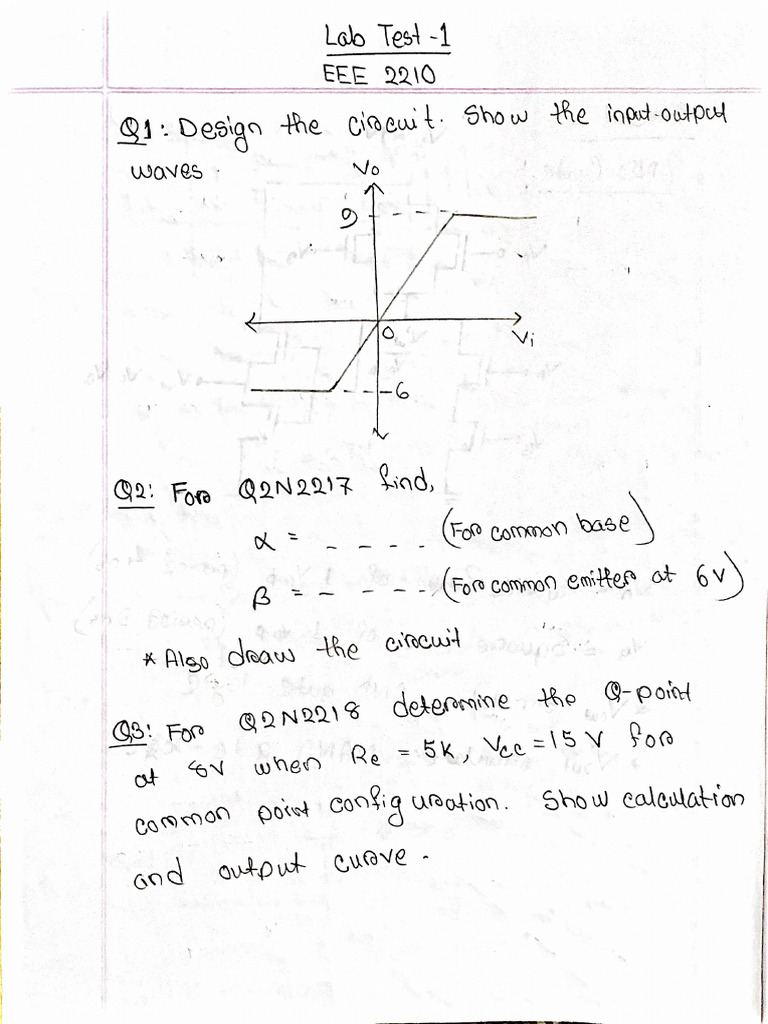 Lab Test -1
EEE 2210
Q1: Design the circuit. Show the input-output
waves.
Vo
9
0
Vi
-6
Q2: For Q2N2217 find,
α = - - - - (For common base)
β = - - - - (For common emitter at 6V)
* Also draw the circuit
Q3: For Q2N2218 determine the Q-point
at 8V when Rc = 5K, Vcc = 15 V for
common point configuration. Show calculation
and output curve.